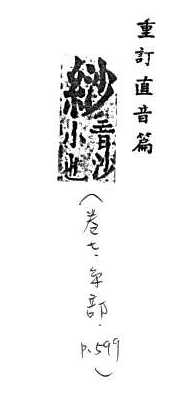 重訂直音篇
紗 音沙 小也
(卷七.糸部.p.599)